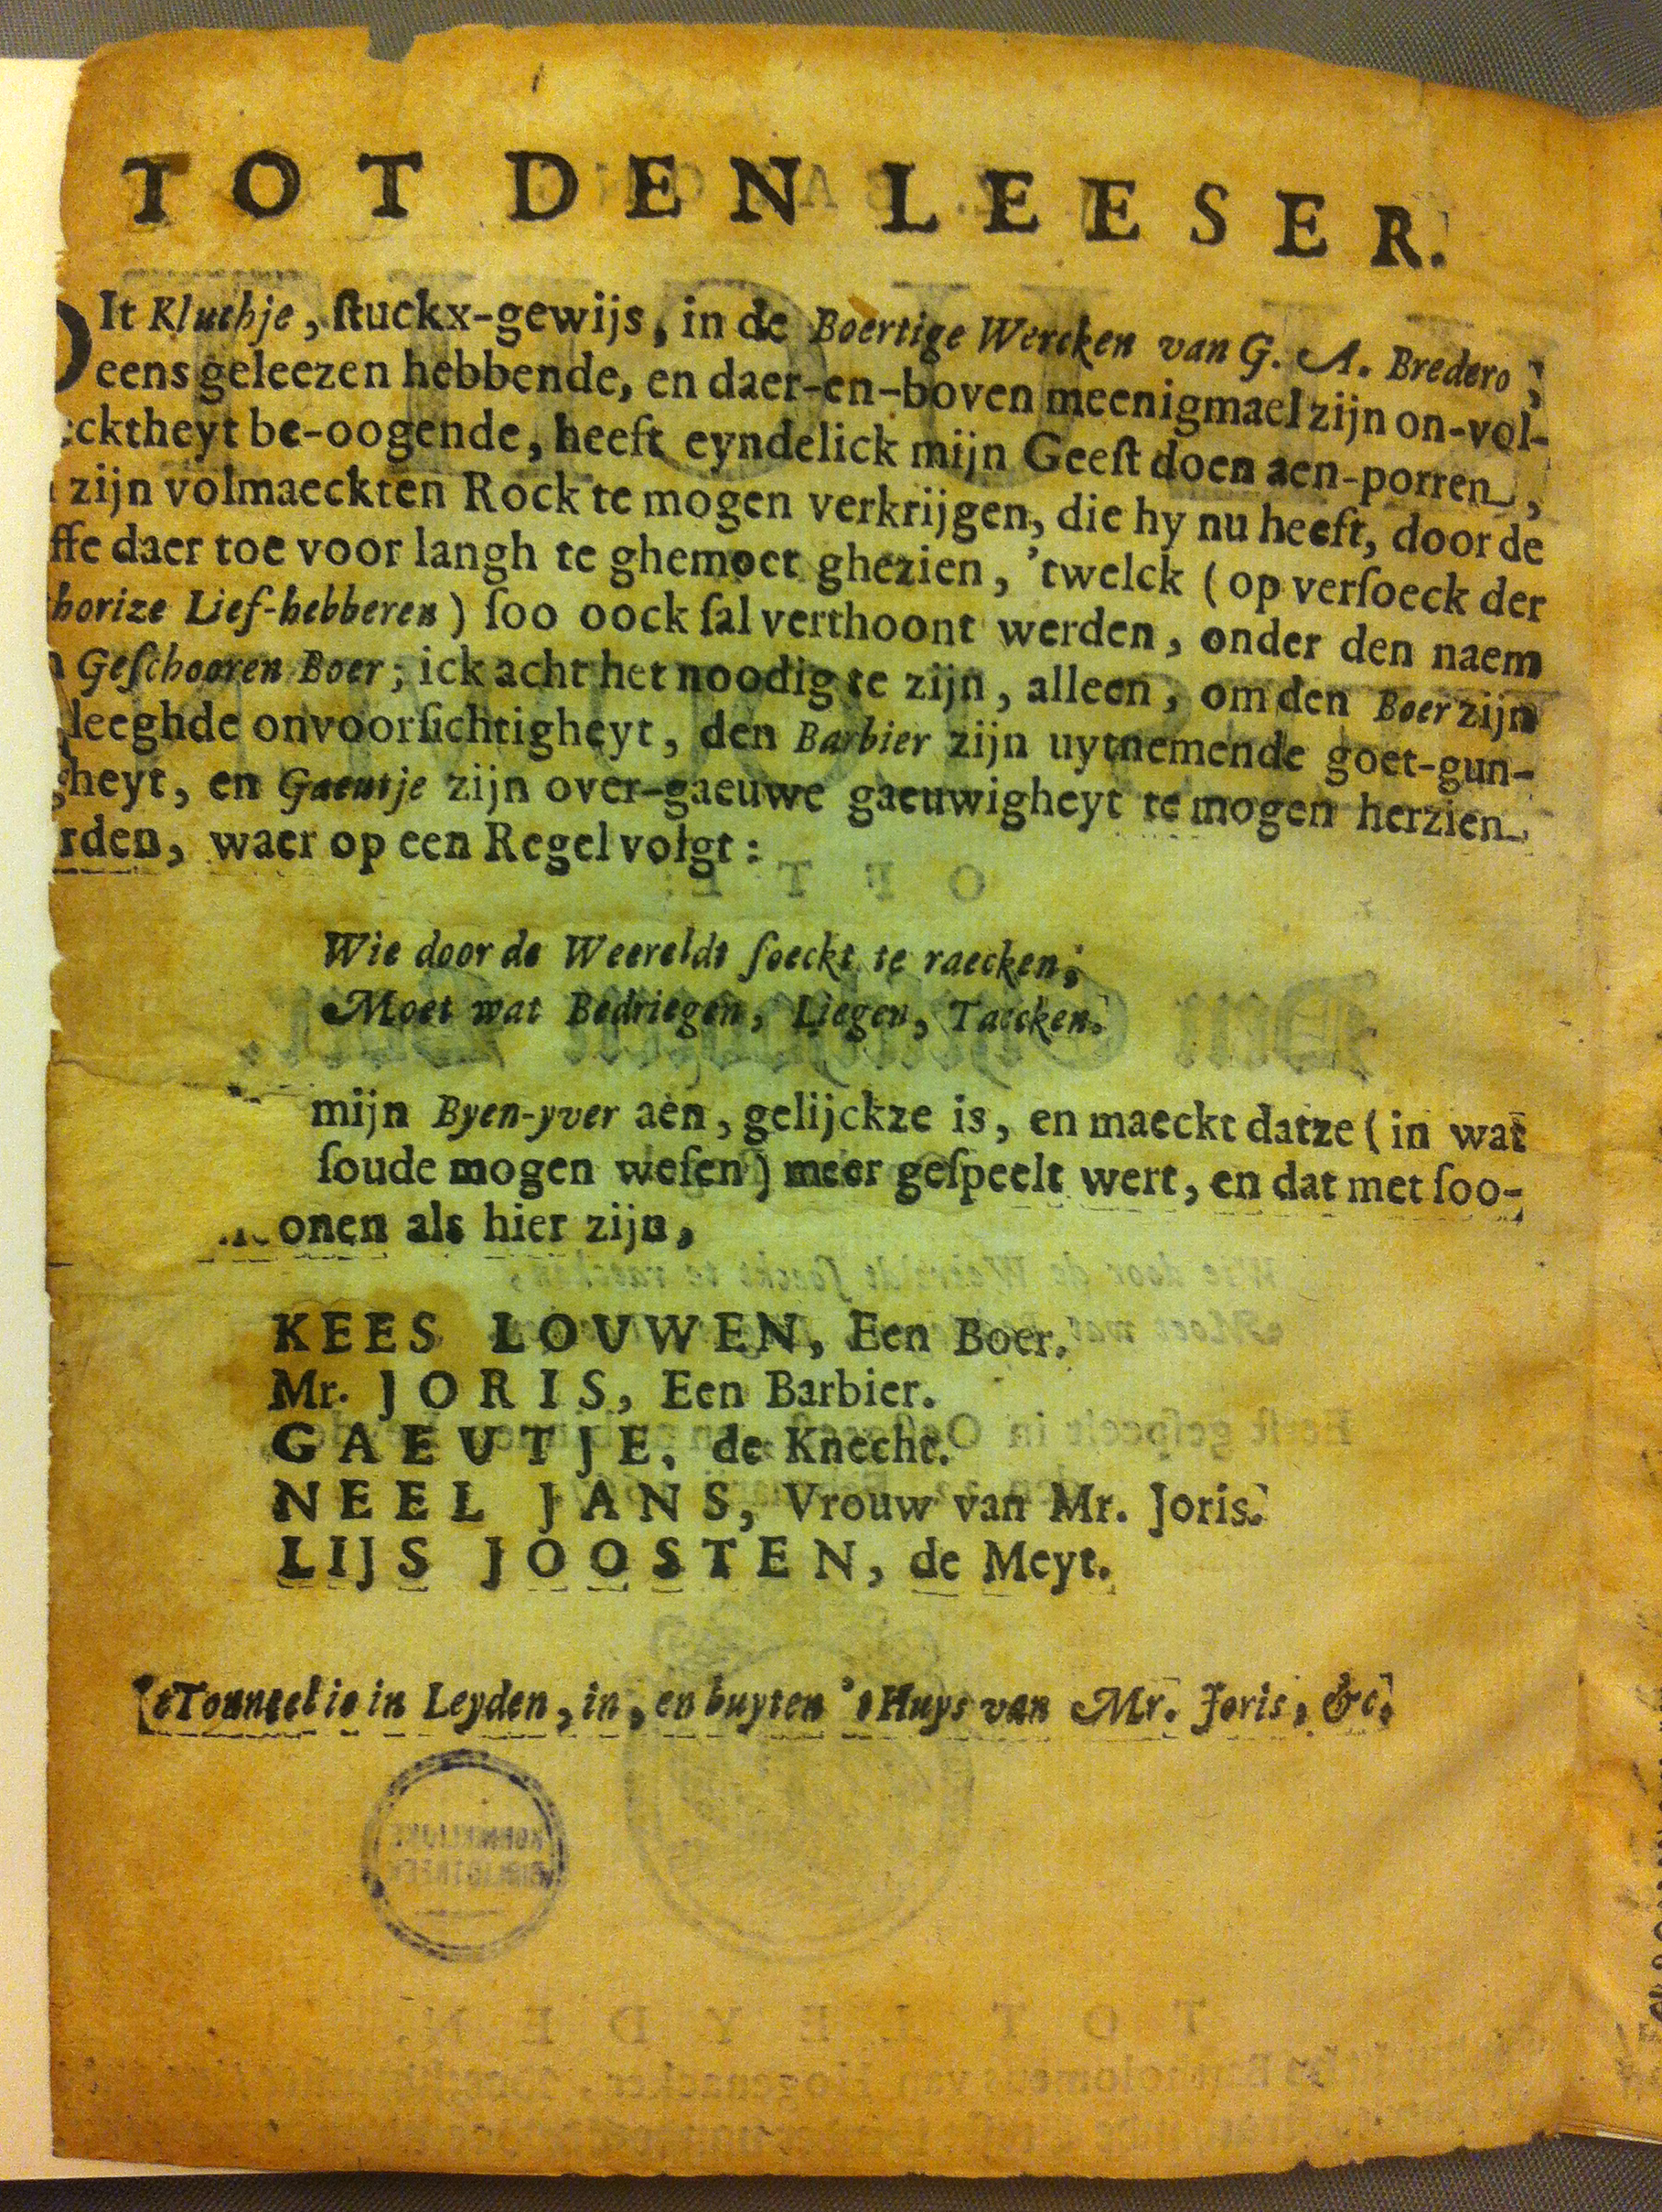 TOT DEN LEESER.
DIt Kluchje, ſtuckx-gewijs, in de Boertige Wercken van G. A. Bredero,
eens geleezen hebbende, en daer-en-boven meenigmael zijn on-vol-
cktheyt be-oogende, heeft eyndelick mijn Geeſt doen aen-porren,
zijn volmaeckten Rock te mogen verkrijgen, die hy nu heeft, door de
ffe daer toe voor langh te ghemoet ghezien, 'twelck (op verſoeck der
horize Lief-hebberen) ſoo oock ſal verthoont werden, onder den naem
Geſchooren Boer; ick acht het noodig te zijn, alleen, om den Boer zijn
leeghde onvoorſichtigheyt, den Barbier zijn uytnemende goet-gun-
gheyt, en Gaeutje zijn over-gaeuwe gaeuwigheyt te mogen herzien
rden, waer op een Regel volgt:
Wie door de Weereldt ſoeckt te raecken,
Moet wat Bedriegen, Liegen, Taecken.
mijn Byen-yver aen, gelijckze is, en maeckt datze (in wat
ſoude mogen weſen) meer geſpeelt wert, en dat met ſoo-
onen als hier zijn,
KEES LOUWEN, Een Boer.
Mr. JORIS, Een Barbier.
GAEUTJE, de Knecht.
NEEL JANS, Vrouw van Mr. Joris.
LIJS JOOSTEN, de Meyt.
'tTonneel is in Leyden, in, en buyten 't Huys van Mr. Joris, &c.
KONINKLIJKE
BIBLIOTHEEK